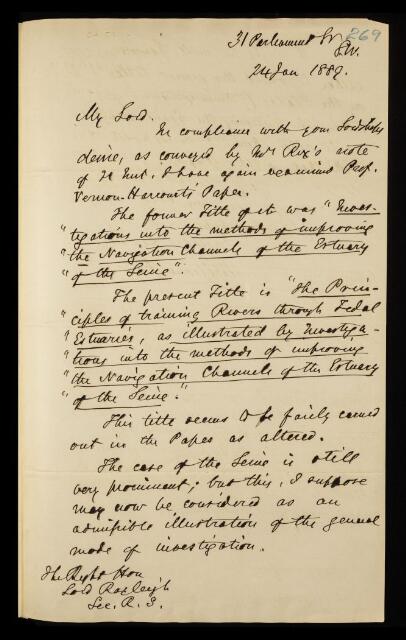 269
31 Parliament St
S.W.
24 Jan 1889.
My Lord.
In compliance with your Lordship's
desire, as conveyed by Mr Rix's note
of Inst. I have again examined Prof.
Vernon-Harcourt's Paper.
The former Title of it was "Inves-
"tigations into the methods of improving
"the Navigation Channels of the Estuary
"of the Seine".
The present Title is "The Prin-
"ciples of training Rivers through Tidal
"Estuaries, as illustrated by Investiga-
"tions into the methods of improving
"the Navigation Channels of the Estuary
"of the Seine."
This title seems to be fairly carried
out in the Paper as altered.
The case of the Seine is still
very prominent; but this, I suppose
may now be considered as an
admissible illustration of the general
mode of investigation.
The Right Hon
Lord Rayleigh
Sec. R. S.